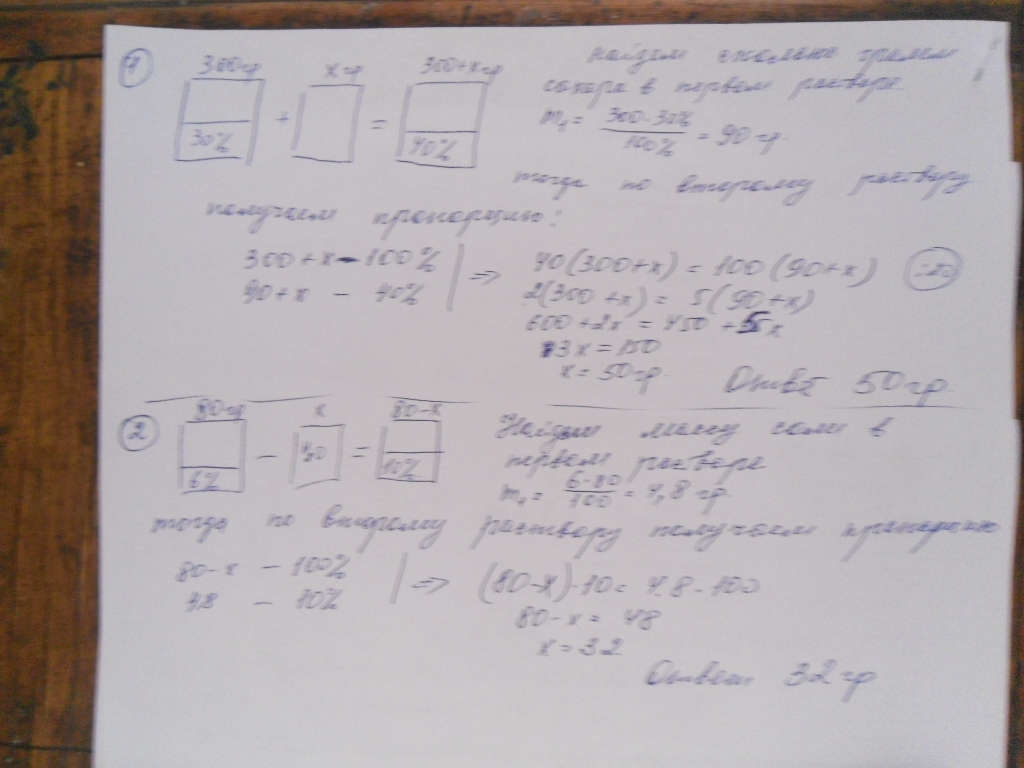 1
300гр  х гр  300+х гр
30% + = 40%
найдем сколько грамм
сахара в первом растворе.
m₁ = 300·30% / 100% = 90 гр.
тогда по второму раствору
получаем пропорцию:
300+х - 100% | => 40(300+х) = 100(90+х) :20
90+х - 40%
2(300+х) = 5(90+х)
600+2х = 450+5х
3х = 150
х = 50гр.
Ответ 50гр.
2
80гр  х  80-х
6% - = 10%
Найдем массу соли в
первом растворе
m₁ = 6·80 / 100 = 4,8 гр.
тогда по второму раствору получаем пропорцию
80-х - 100% | => (80-х)·10 = 4,8·100
4,8 - 10%
80-х = 48
х = 32
Ответ 32гр